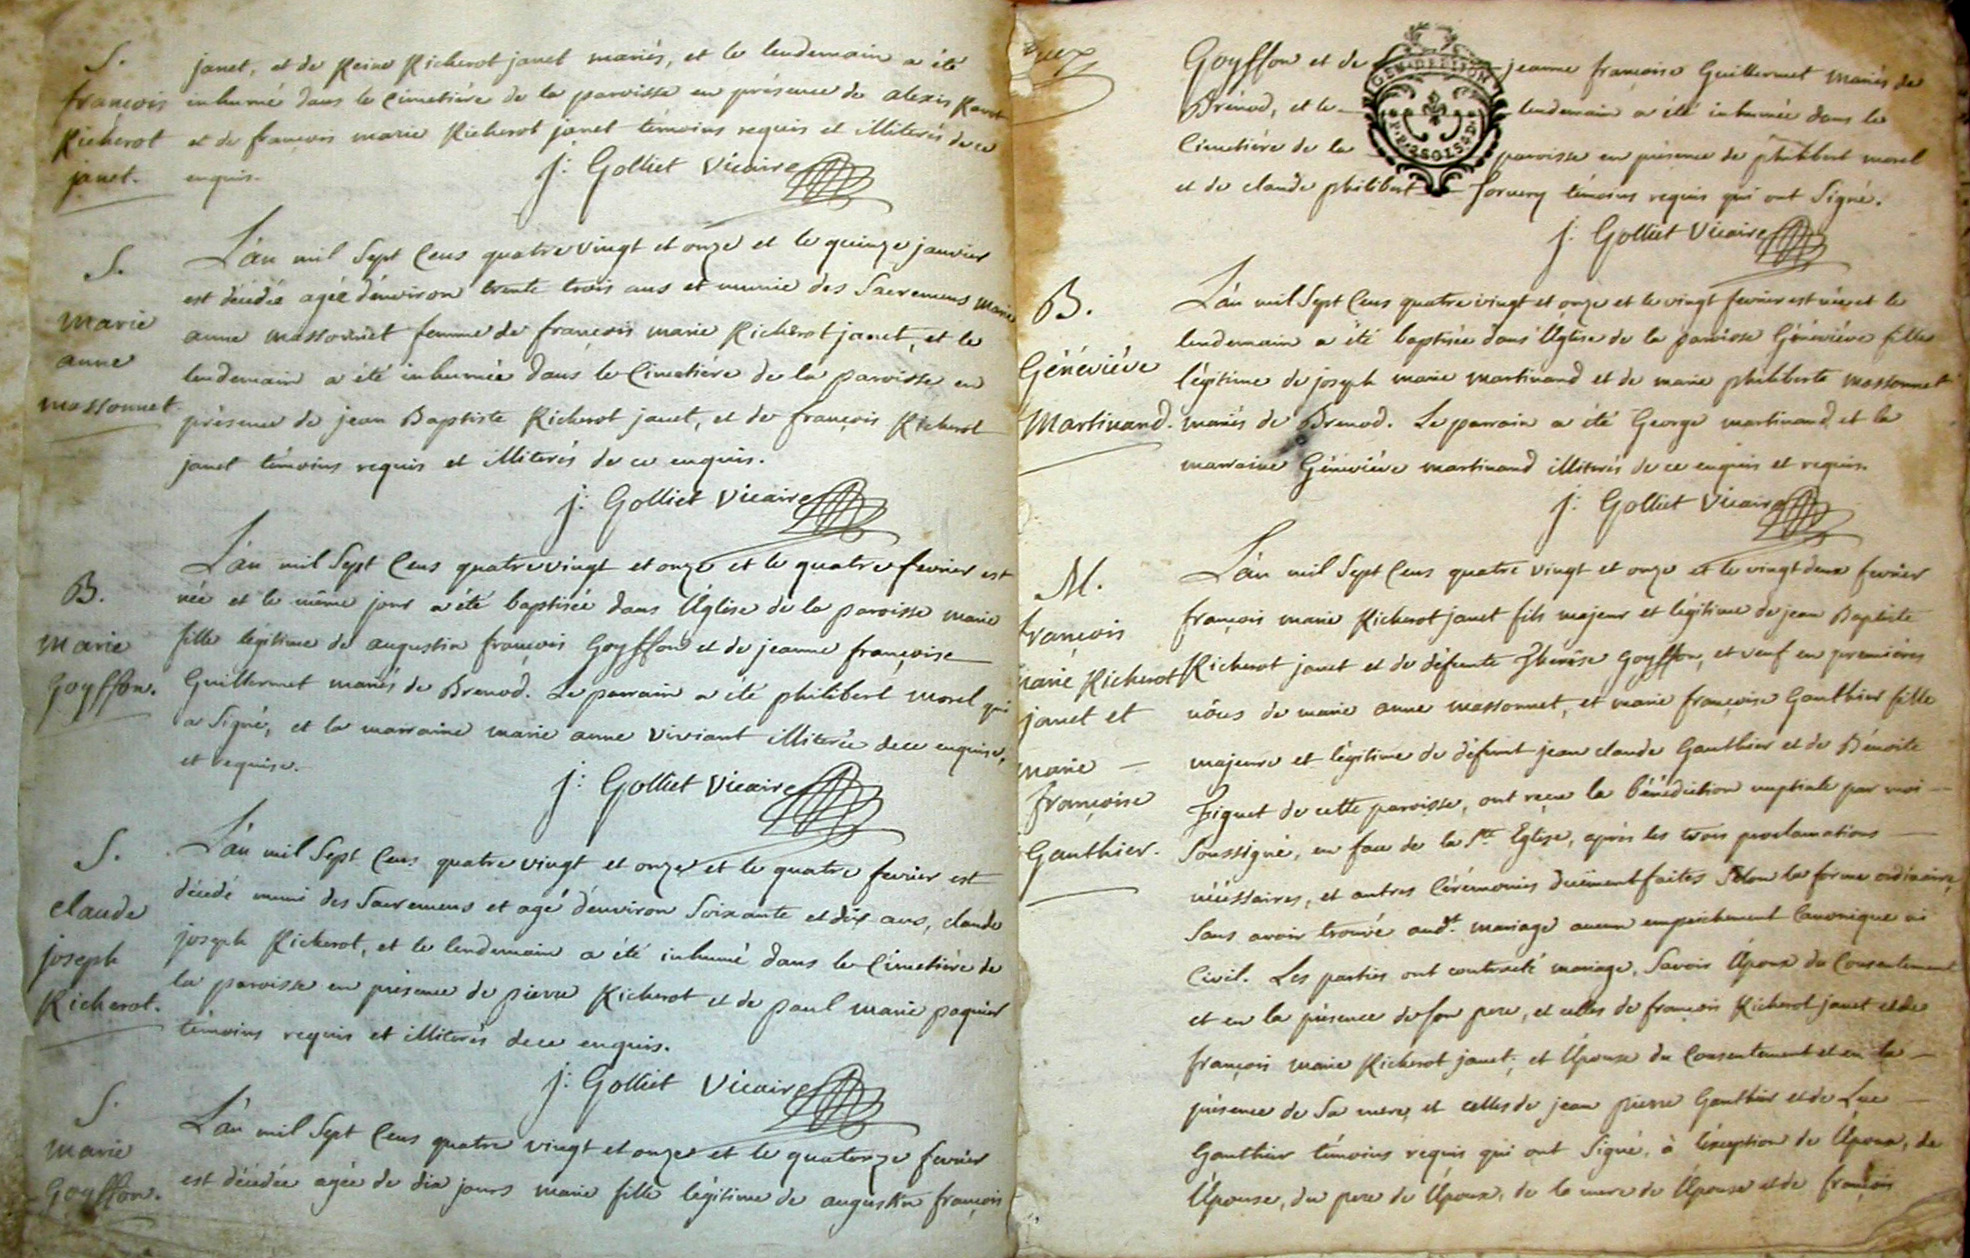 S.
françois
Richerot
janet.
janet, et de Reine Richerot janet mariés, et le lendemain a été
inhumé dans le Cimetière de la paroisse en présence de alexis Ravet
et de françois marie Richerot janet témoins requis et illiterés de ce
enquis.
j: Golliet Vicaire
S.
marie
anne
massonnet
L'an mil Sept Cens quatre vingt et onze et le quinze janvier
est décédée agée d'environ trente trois ans et munie des Sacremens marie
anne massonnet femme de françois marie Richerot janet, et le
lendemain a été inhumée dans le Cimetière de la paroisse en
présence de jean Baptiste Richerot janet, et de françois Richerot
janet témoins requis et illiterés de ce enquis.
j: Golliet Vicaire
B.
marie
Goyffon.
L'an mil Sept Cens quatre vingt et onze et le quatre fevrier est
née et le même jour a été baptisée dans l'Église de la paroisse marie
fille légitime de augustin françois Goyffon et de jeanne françoise
Guillermet mariés de Brenod. Le parrain a été philibert morel qui
a Signé, et la marraine marie anne Viviant illiterée de ce enquise,
et requise.
j: Golliet Vicaire
S.
claude
joseph
Richerot.
L'an mil Sept Cens quatre vingt et onze et le quatre fevrier est
décédé muni des Sacremens et agé d'environ Soixante et dix ans, claude
joseph Richerot, et le lendemain a été inhumé dans le Cimetière de
la paroisse en présence de pierre Richerot et de paul marie paquier
témoins requis et illiterés de ce enquis.
j: Golliet Vicaire
S.
marie
Goyffon.
L'an mil Sept Cens quatre vingt et onze et le quatorze fevrier
est décédée agée de dix jours marie fille légitime de augustin françois
Goyffon et de jeanne françoise Guillermet mariés de
Brénod, et le lendemain a été inhumée dans le
Cimetière de la paroisse en présence de philibert morel
et de claude philibert témoins requis qui ont Signé.
GEN. DE DIJON
j: Golliet Vicaire
B.
Généviéve
Martinand.
L'an mil Sept Cens quatre vingt et onze et le vingt fevrier est née et le
lendemain a été baptisée dans l'Église de la paroisse Généviéve fille
légitime de joseph marie martinand et de marie philiberte massonnet
mariés de Brenod. Le parrain a été George martinand et la
marraine Généviéve martinand illiterés de ce enquis et requis.
j: Golliet Vicaire
M.
françois
marie Richerot
janet et
marie
françoise
Gauthier.
L'an mil Sept Cens quatre vingt et onze et le vingt deux fevrier
françois marie Richerot janet fils majeur et légitime de jean Baptiste
Richerot janet et de défunte Therése Goyffon, et veuf en premieres
nôces de marie anne massonnet, et marie françoise Gauthier fille
majeure et légitime de défunt jean claude Gauthier et de Bénoite
de cette paroisse, ont recu la bénédiction nuptiale par moi
Soussigné, en face de la Ste Église, après les trois proclamations
nécéssaires, et autres Cérémonies duëment faites Selon la forme ordinaire,
Sans avoir trouvé aud.t mariage aucun empêchement Canonique ni
Civil. Les parties ont contracté mariage, Savoir l'Époux du Consentement
et en la présence de son pere, et celles de françois Richerot janet et de
françois marie Richerot janet; et l'Épouse du Consentement et en la
présence de Sa mere, et celles de jean pierre Gauthier et de Luc
Gauthier témoins requis qui ont Signé, à l'éxception de l'Époux, de
l'Épouse, du pere de l'Époux, de la mere de l'Épouse et de françois